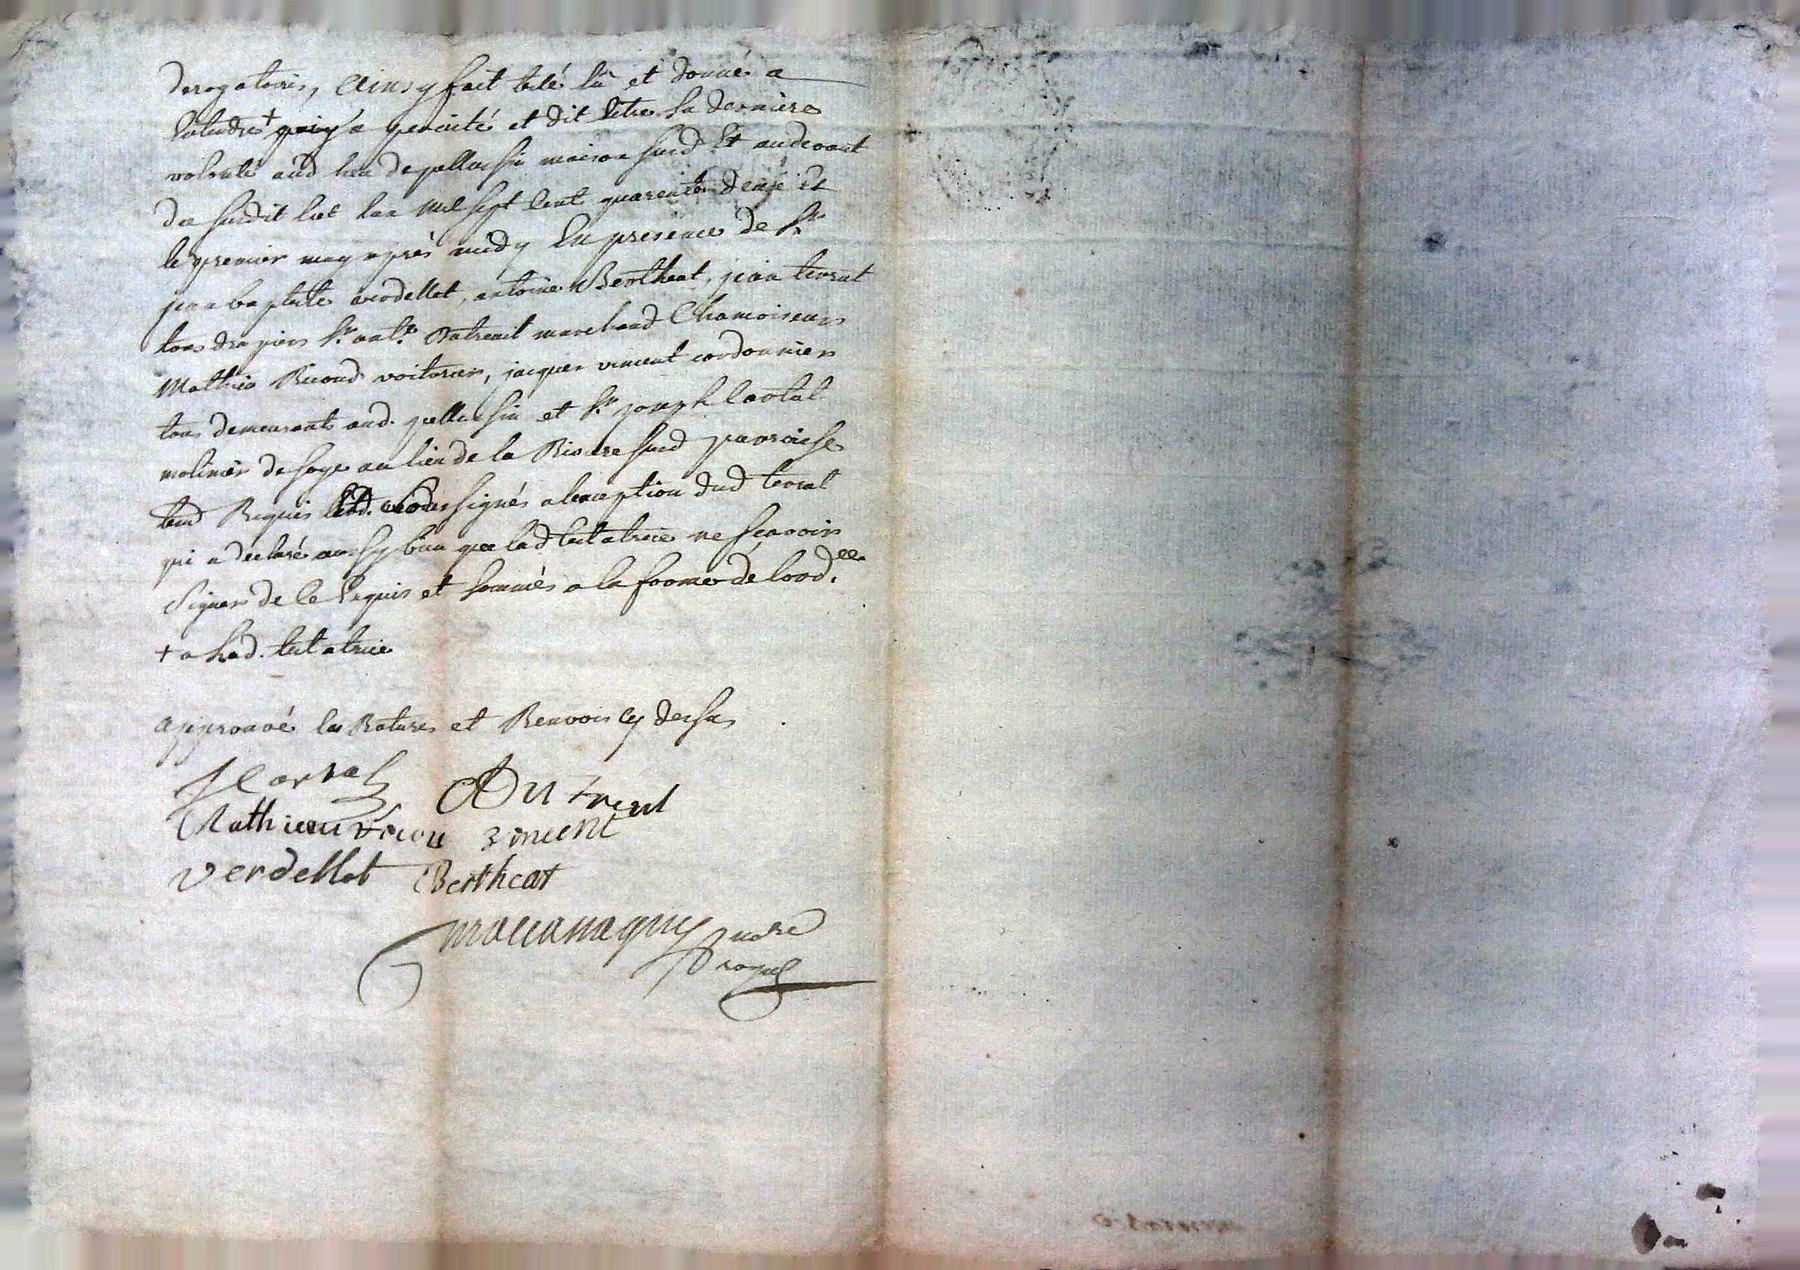 derogatoires, Ainsy fait leté lû et donné a
entendre + a percisté et dit Être sa derniere
volonté aud lieu de pellussin maison susd Et audevant
du susdit lict l'an mil sept Cent quarente deux Et
le premier may après midy En presence de Sr
jean baptiste verdellet, antoine Bertheat, jean terrat
tous drapiers Sr ant.e Dutreuil marchand Chamoiseur
Mathieu Ricoud voiturier, jacques vincent cordonnier
tous demeurants aud. pellussin et Sr joseph Carotal
molinier de soye au lieu de la Riviere susd parroisse
Requis signés a l'exception dud terrat
qui a declaré aussy bien que lad testatrice ne sçavoir
signer de ce Enquis et sommés a la forme de l'ord.ce
+ a lad. testatrice
approuvé les Ratures et Renvois cy dessus
Dutreul
Mathieu vincent
verdellet Bertheat